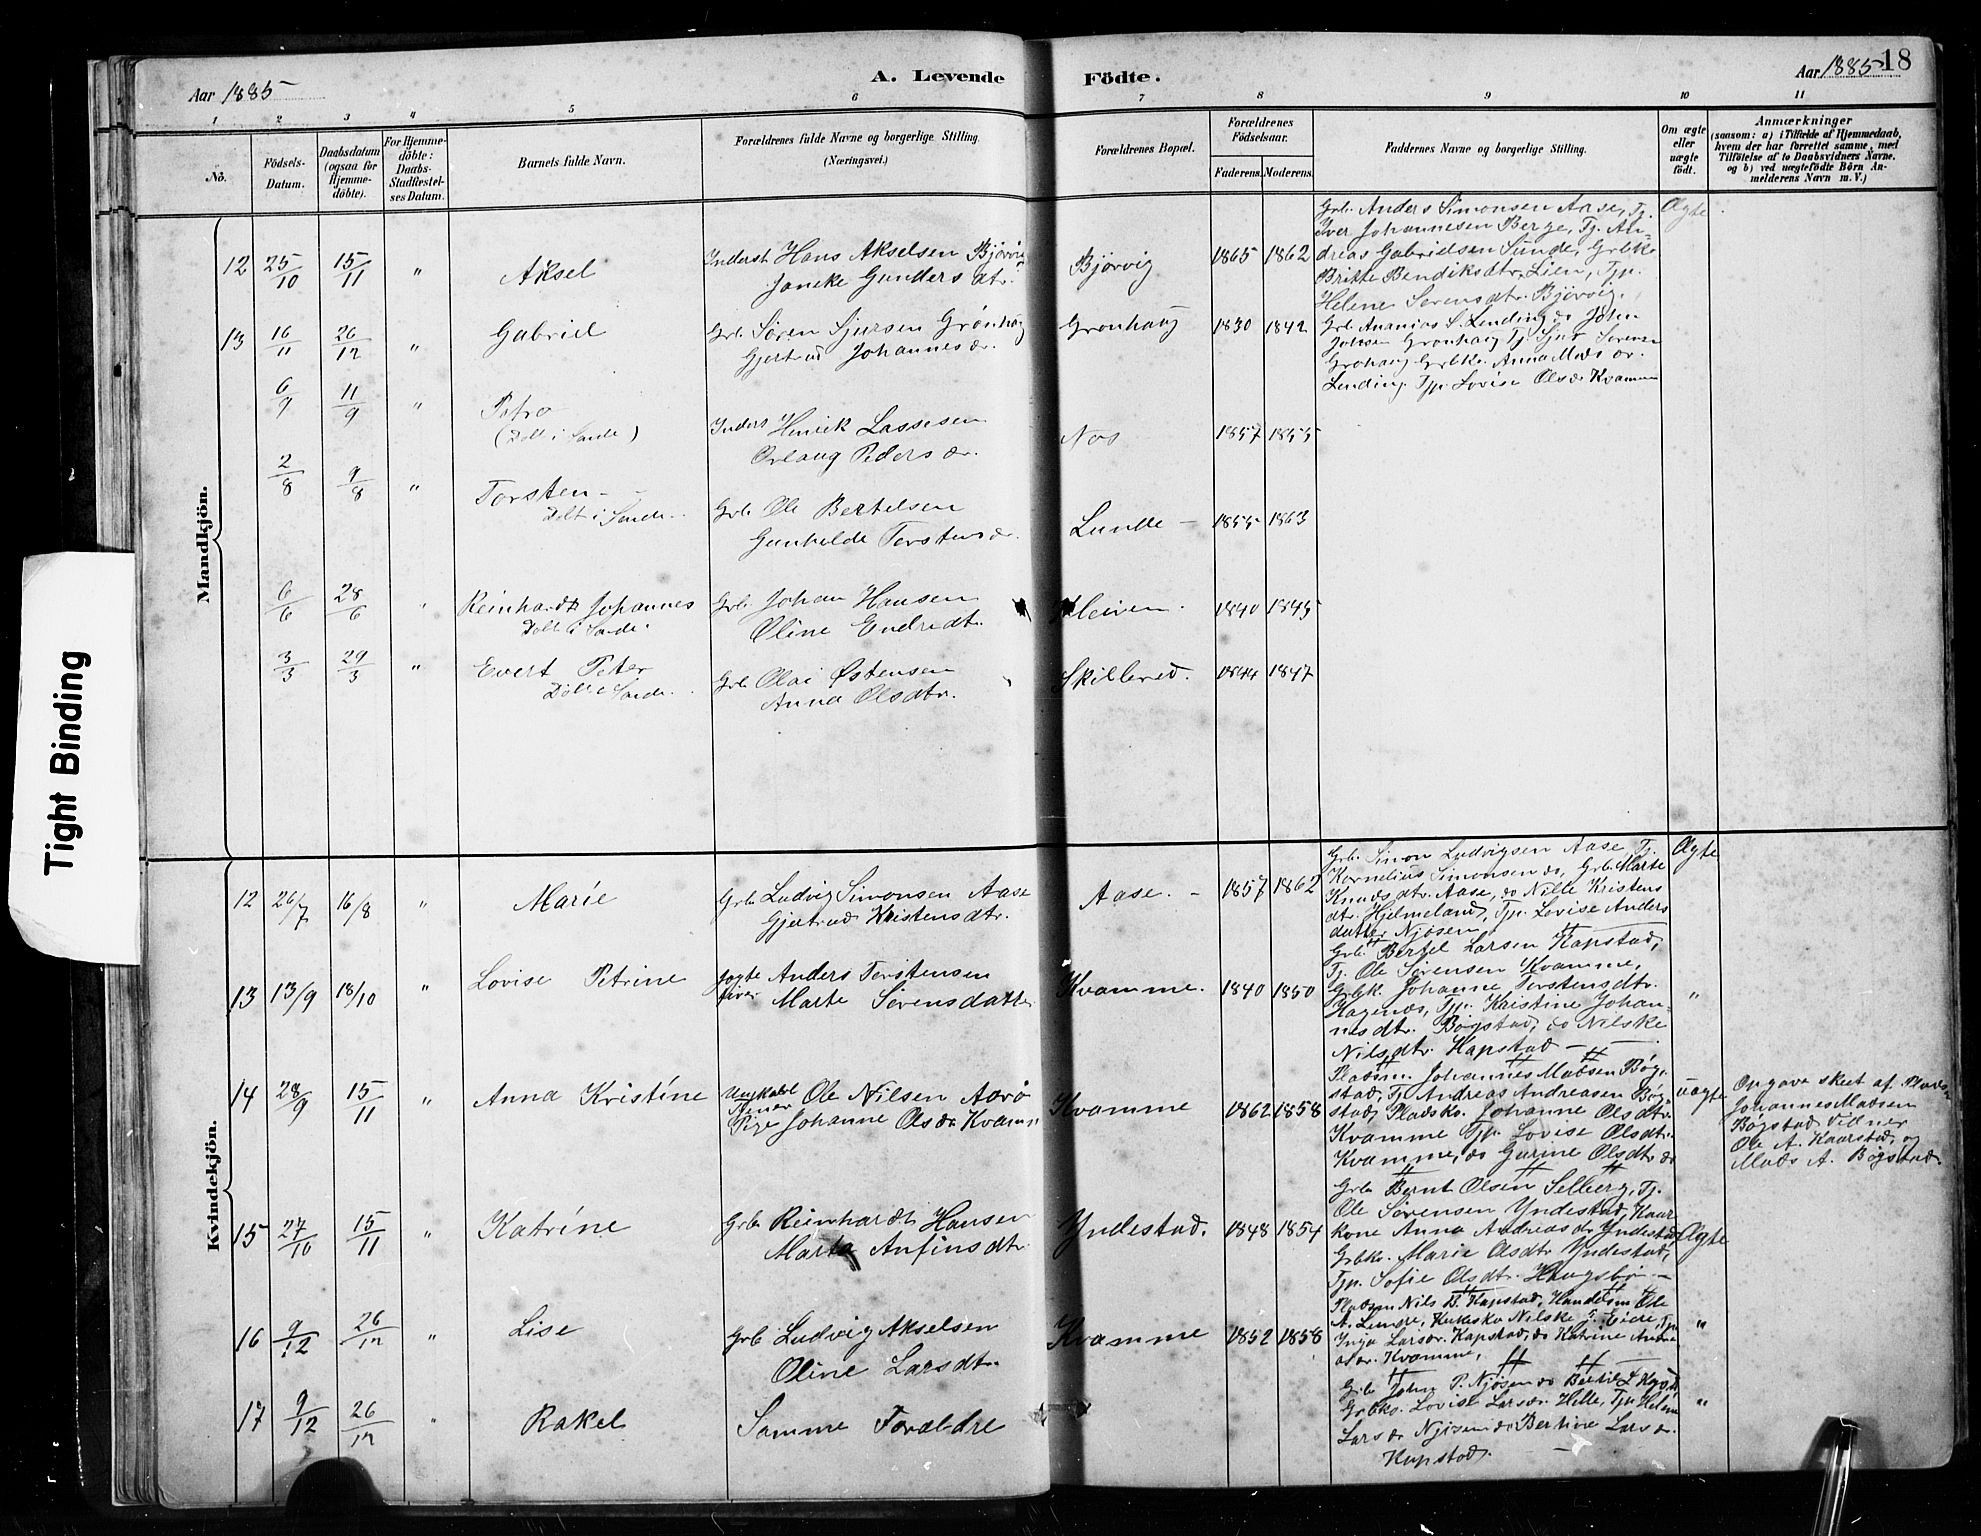 Aar 1885
A. Levende Födte.
Aar 1885
18
1 2 3 4 5 6 7 8 9 10 11
No.
Födsels-
Datum.
Daabsdatum
(ogsaa for
Hjemme-
döbte).
For Hjemme-
döbte:
Daabs-
Stadfæstel-
ses Datum.
Barnets fulde Navn.
Forældrenes fulde Navne og borgerlige Stilling.
(Næringsvei.)
Forældrenes Bopæl.
Forældrenes
Födselsaar.
Faderens. Moderens.
Faddernes Navne og borgerlige Stilling.
Om ægte
eller
uægte
födt.
Anmærkninger
(saasom: a) i Tilfælde af Hjemmedaab,
hvem der har forrettet samme, med
Tilföielse af to Daabsvidners Navne,
og b) ved uægtefödte Börn An-
melderens Navn m. V.)
Mandkjön.
12 25/10 15/11 " Aksel
Inderst Hans Akselsen Bjørvig
Janeke Gunders dtr.
Bjørvig 1865 1862
Grb. Anders Simonsen Aase, Tj.
Iver Johannesen Berge, Tj. An-
dreas Gabrielsen Sunde, Grbko
Britte Bendiksdtr. Lien, Tjp.
Helene Sørensdtr. Bjørvig.
Ægte
13 16/11 26/12 " Gabriel
Grb. Søren Sjursen Grønhaug
Gjertrud Johannesdr.
Grønhaug 1830 1842
Grb. Ananias S. Lending, do John
Johnsen Grønhaug Tj. Sjur Sørensen
Grøhaug Grbko. Anna Mads dr.
Lending, Tjp. Lovise Olsdr Kvamme
6/9 11/9 " Petra
(Døbt i Sande)
Inders Henrik Lassesen
Orlaug Pedersdr.
Nos 1857 1855
2/8 9/8 " Torsten
Døbt i Sande.
Grb. Ole Bertelsen
Gunhilde Torstensdr.
Lunde 1855 1863
6/6 28/6 " Reinhardt Johannes
Døbt i Sande.
Grb. Johan Hansen
Oline Endredtr.
Kleiven. 1840 1845
3/3 29/3 " Evert Peter
Døbt i Sande.
Grb. Olai Østensen
Anna Olsdtr.
Skillered. 1844 1847
Kvindekjön.
12 26/7 16/8 " Marie
Grb. Ludvig Simonsen Aase
Gjertrud Kristensdtr.
Aase. 1857 1862
Grb. Simon Ludvigsen Aase Tj.
Kornelius Simonsen do, Grb. Marte
Knudsdtr. Aase, do Nille Kristens
dtr. Hjelmeland, Tjp. Lovise Anders
datter Njøsen
Ægte
13 13/9 18/10 " Lovise Petrine
Anders Torstensen
Marte Sørensdatter
Kvamme. 1840 1850
Grb. Bertel Larsen Kapstad,
Tj. Ole Sørensen Kvamme,
Grbk. Johanne Torstensdtr.
Hagenæs, Tjp. Kristine Johan-
nesdtr. Bøgstad, do Nilske
Nilsdtr. Kapstad
"
14 28/9 15/11 " Anna Kristine
Ungkarl Ole Nilsen Aarø
Pige Johanne Olsdr Kvamme
Kvamme 1862 1858
Pladsm. Johannes Madsen Bøg-
stad, Tj Andreas Andreasen Bøg-
stad, Pladsko. Johanne Olsdtr.
Kvamme Tjp. Lovise Olsdtr.
Kvamme, do Gurine Olsdtr do
uægte
Opgave skeet af Plads
Johannes Madsen
Bøgstad, Vidner
Ole A. Kaarstad, og
Mads A. Bøgstad.
15 27/10 15/11 " Katrine
Grb. Reinhardt Hansen
Marta Anfinsdtr.
Yndestad. 1848 1854
Grb. Bernt Olsen Selberg, Tj.
Ole Sørensen Yndestad, Kaar-
kone Anna Andreasdr Yndestad
Grbko. Marie Olsdtr Yndestad,
Tjp. Sofie Olsdtr. Haugsbø
Ægte
16 9/12 26/12 " Lise
Grb. Ludvig Akselsen
Oline Larsdtr.
Kvamme 1852 1858
Pladsm Nils B. Kapstad, Handelsm Ole
A. Lunde, Nilske J. Eide, Tjp
Inga Larsdr. Kapstad, do Katrine
Kvamme,
"
17 9/12 26/12 " Rakel
Samme Forældre
Grb. John P. Njøsen do Bertil L.
Grbko. Lovise Larsdr Helle, Tjp. Helene
Larsdr Njøsen do Bertine Larsdr.
Kapstad.
"
Tight Binding